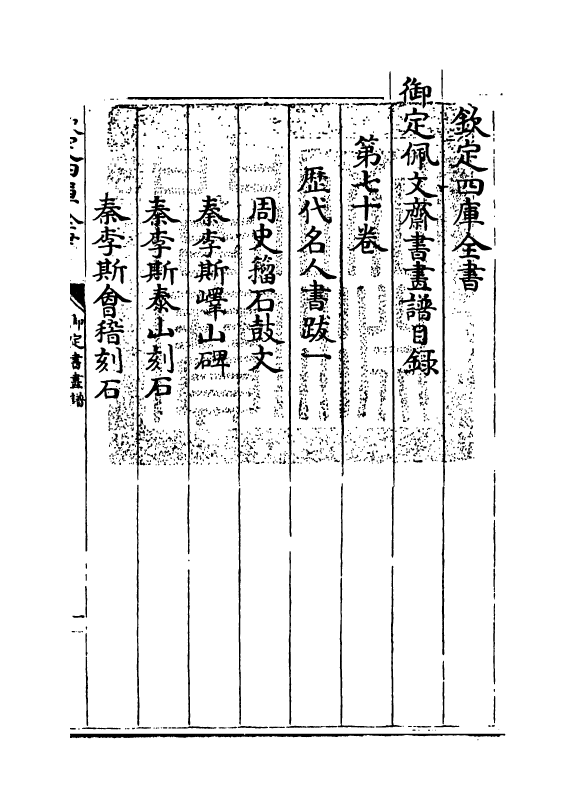 欽定四庫全書
御定佩文齋書畫譜目録
第七十卷
歴代名人書跋一
周史籀石鼓文
秦李斯嶧山碑
秦李斯泰山刻石
秦李斯會稽刻石
欽定四庫全書
御定書畫譜
一